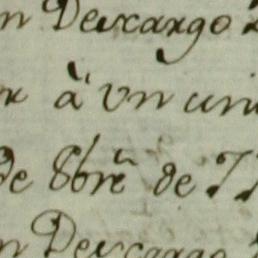 n Descargo
à un
de 8bre de
n Descargo